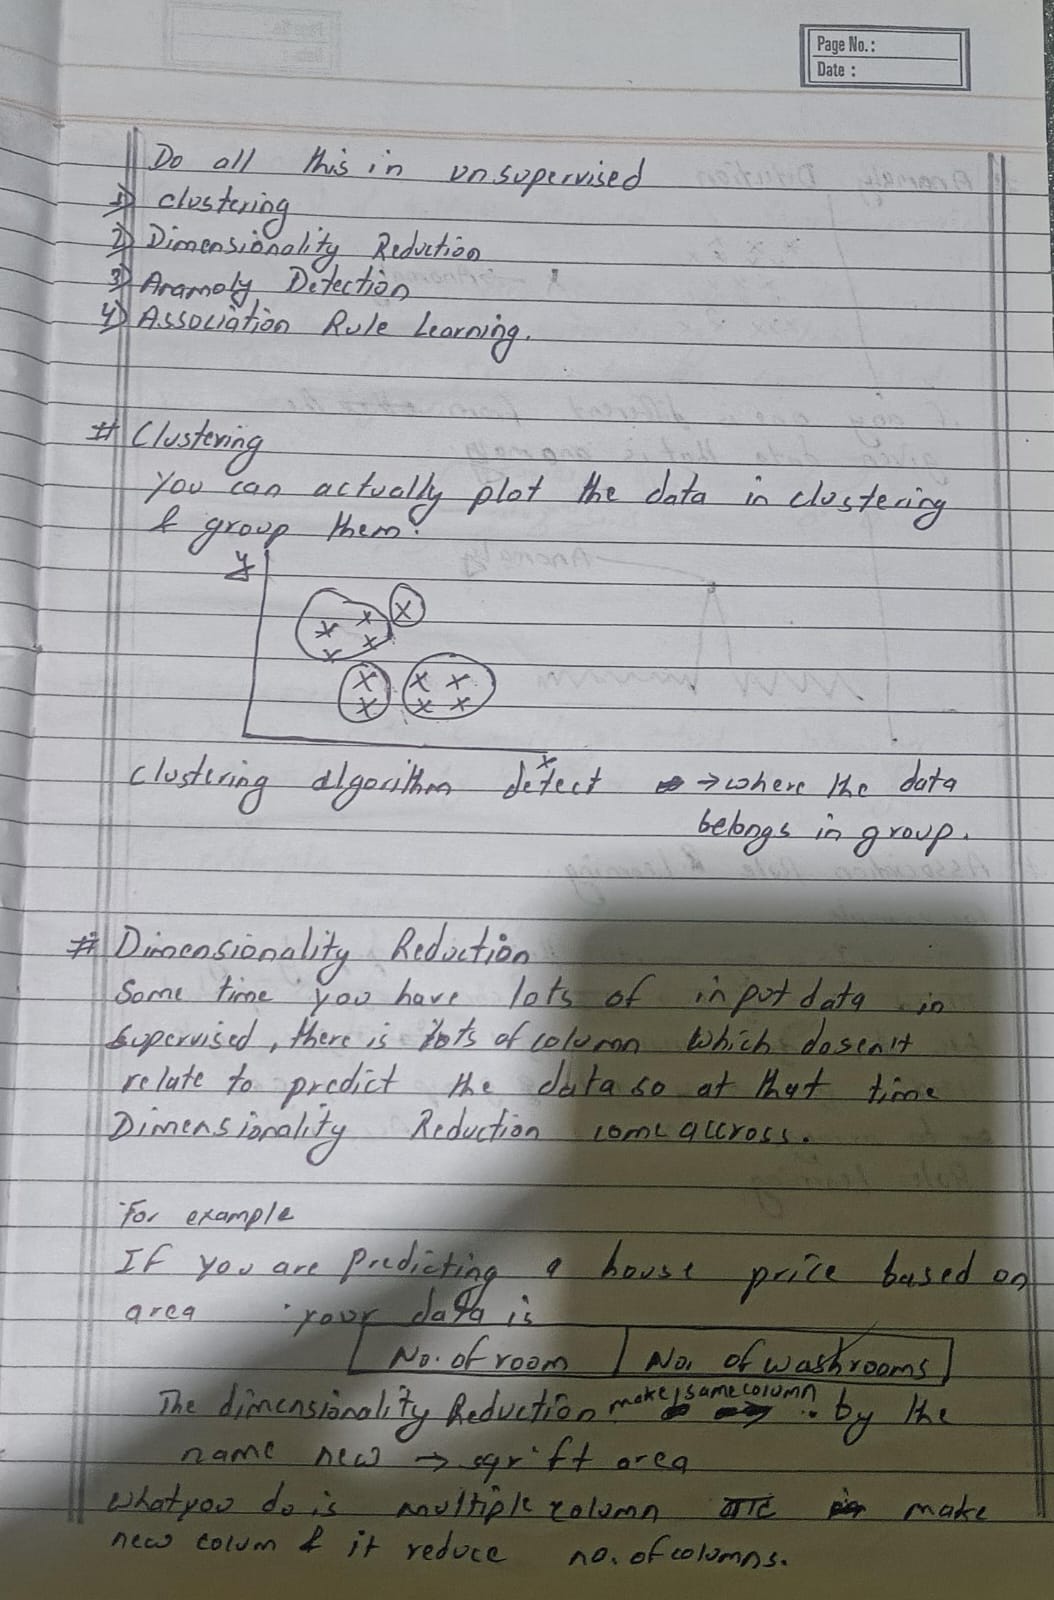 Page No.:
Date :
Do all this in unsupervised
1) Clustering
2) Dimensionality Reduction
3) Anamoly Detection
4) Association Rule Learning.
# Clustering
You can actually plot the data in clustering
& group them.
y
x
Clustering algorithm detect → where the data
belongs in group.
# Dimensionality Reduction
Some time you have lots of input data in
supervised, there is lots of column which dosen't
relate to predict the data so at that time
Dimensionality Reduction come accross.
For example
If you are predicting a house price based on
area your data is
No. of room | No. of washrooms
The dimensionality Reduction make same column by the
name new → sqr ft area
What you do is multiple column make
new colum & it reduce no. of columns.